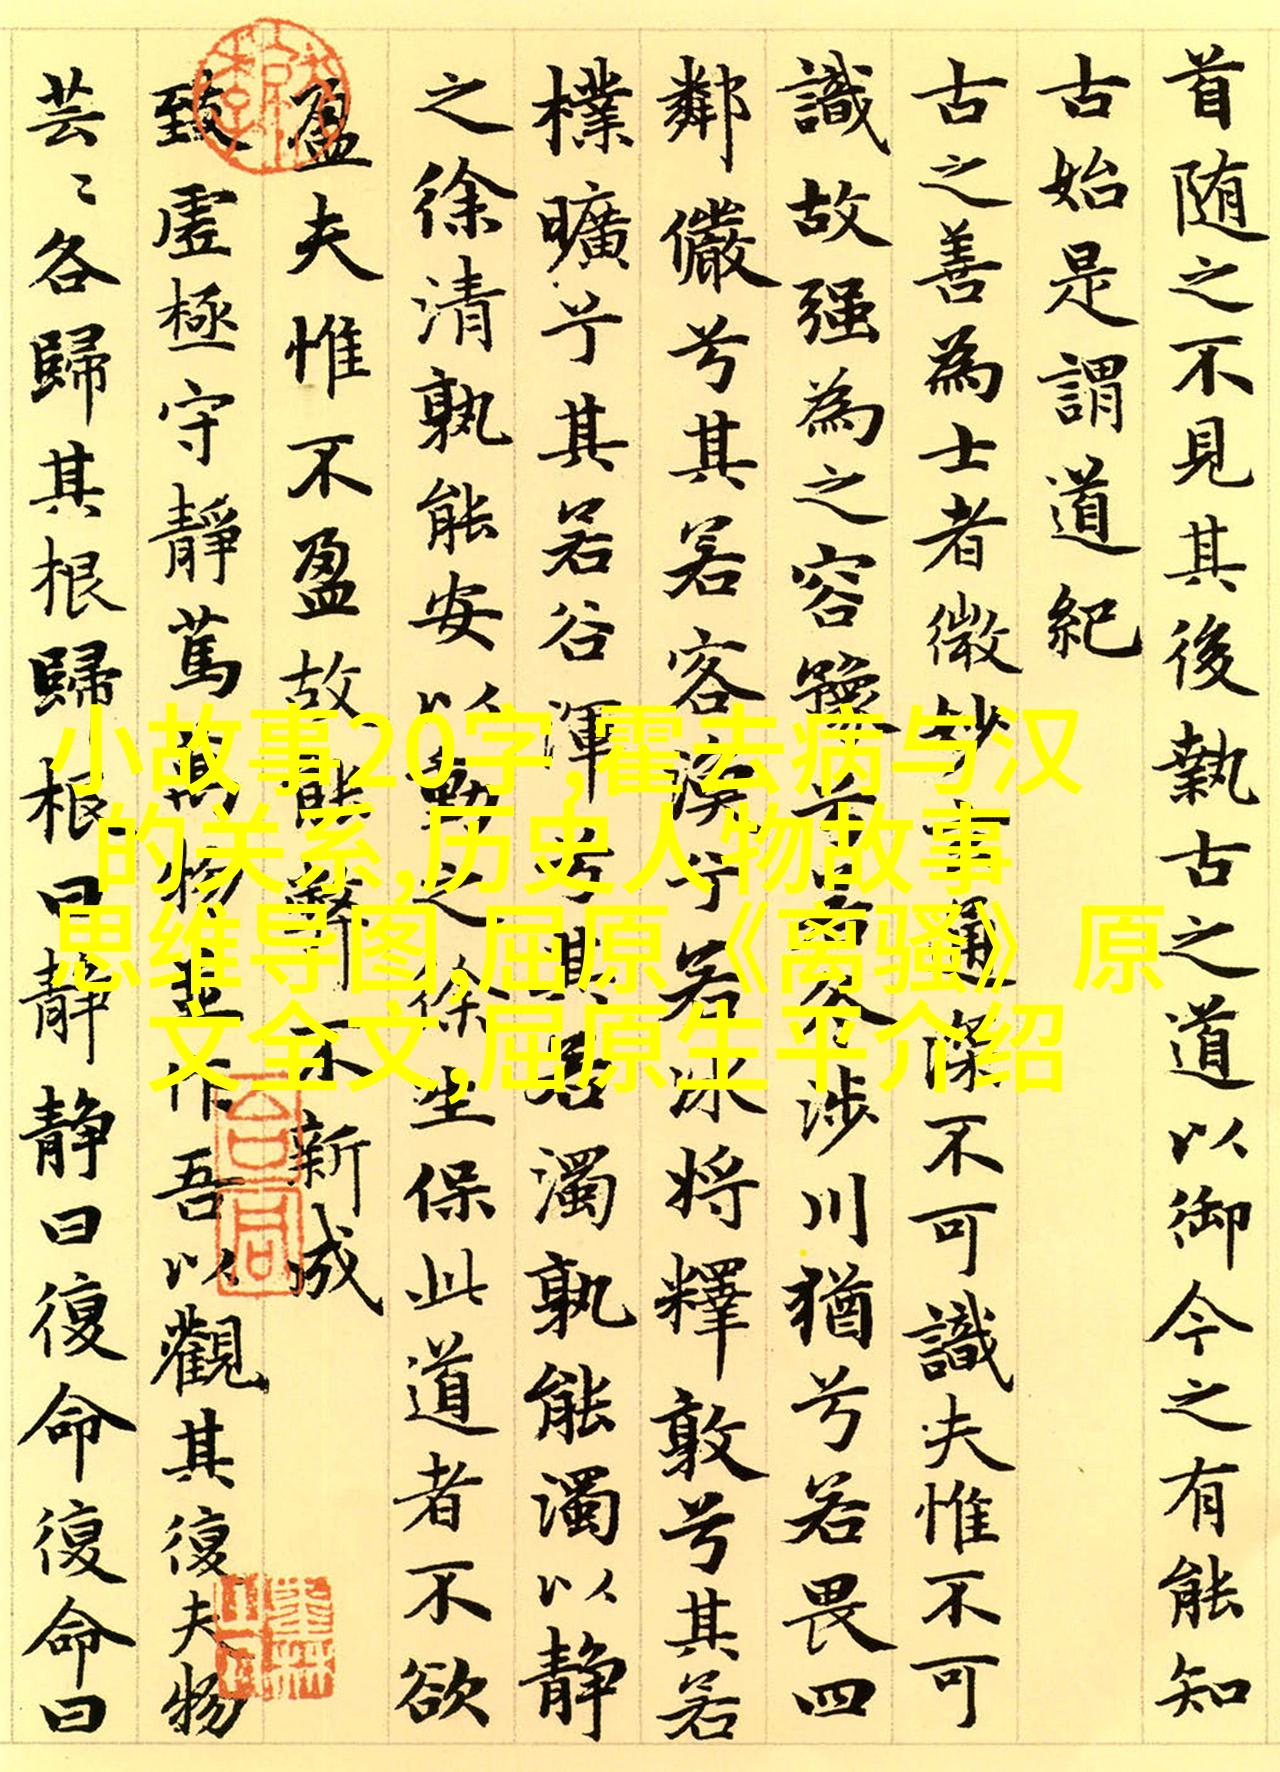 首随之不見其後執古之道以御今之有能知
古始是謂道紀
古之善為士者微妙玄通深不可識夫惟不可
識故强為之容豫兮若冬涉川猶兮若畏四
鄰儼兮其若客渙兮若冰將釋敦兮其若
樸曠兮其若谷渾兮其若濁孰能濁以静
之徐清孰能安以動之徐生保此道者不欲
盈夫惟不盈故能弊不新成
致虛極守靜篤萬物並作吾以觀其復夫物
芸〻各歸其根歸根曰静静曰復命復命曰
小故事20字,霍去病与汉
的关系,历史人物故事
思维导图,屈原《离骚》原
文全文,屈原生平介绍